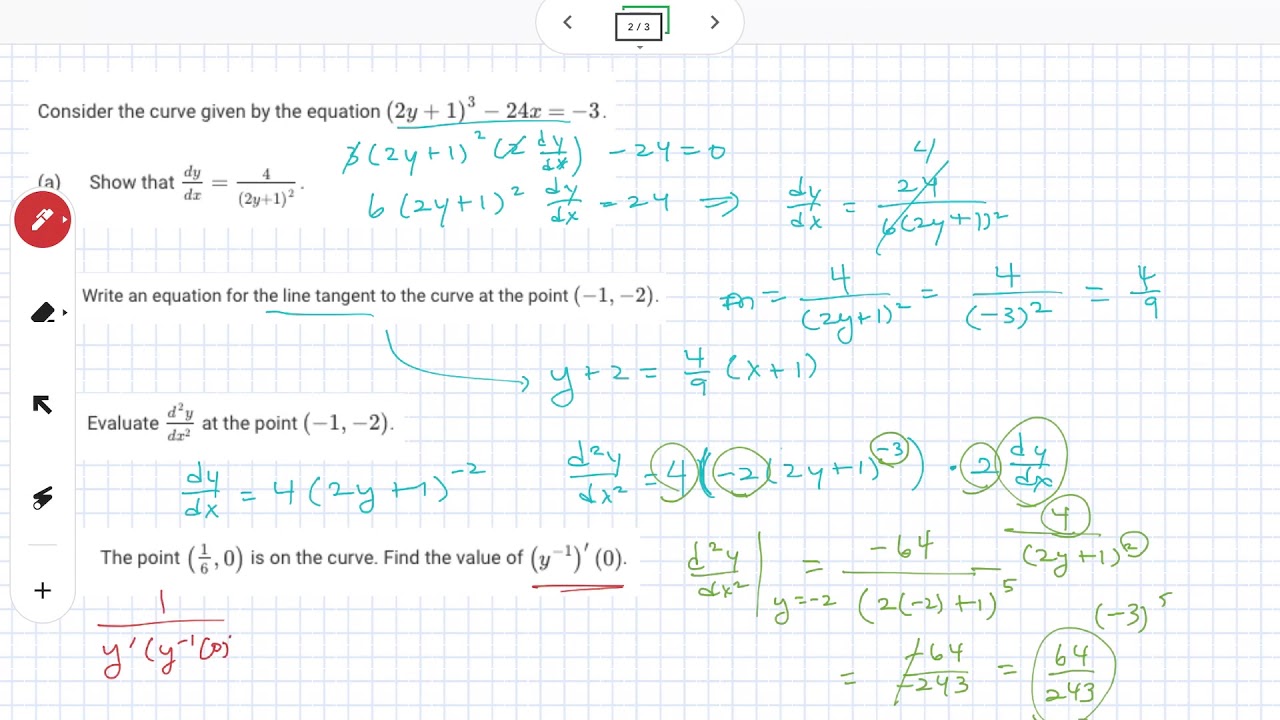 2 / 3
Consider the curve given by the equation (2y + 1)³ − 24x = −3.
3(2y+1)² (2 dy/dx) − 24 = 0
(a) Show that dy/dx = 4/(2y+1)².
6(2y+1)² dy/dx = 24 ⇒ dy/dx = 24/6(2y+1)²
4
Write an equation for the line tangent to the curve at the point (−1, −2).
m = 4/(2y+1)² = 4/(−3)² = 4/9
y + 2 = 4/9 (x + 1)
Evaluate d²y/dx² at the point (−1, −2).
dy/dx = 4(2y+1)⁻²
d²y/dx² = 4(−2(2y+1)⁻³) · 2 dy/dx
4/(2y+1)²
The point (1/6, 0) is on the curve. Find the value of (y⁻¹)′(0).
d²y/dx² | y=−2 = −64/(2(−2)+1)⁵
(−3)⁵
1/y′(y⁻¹(0)
= −64/−243 = 64/243